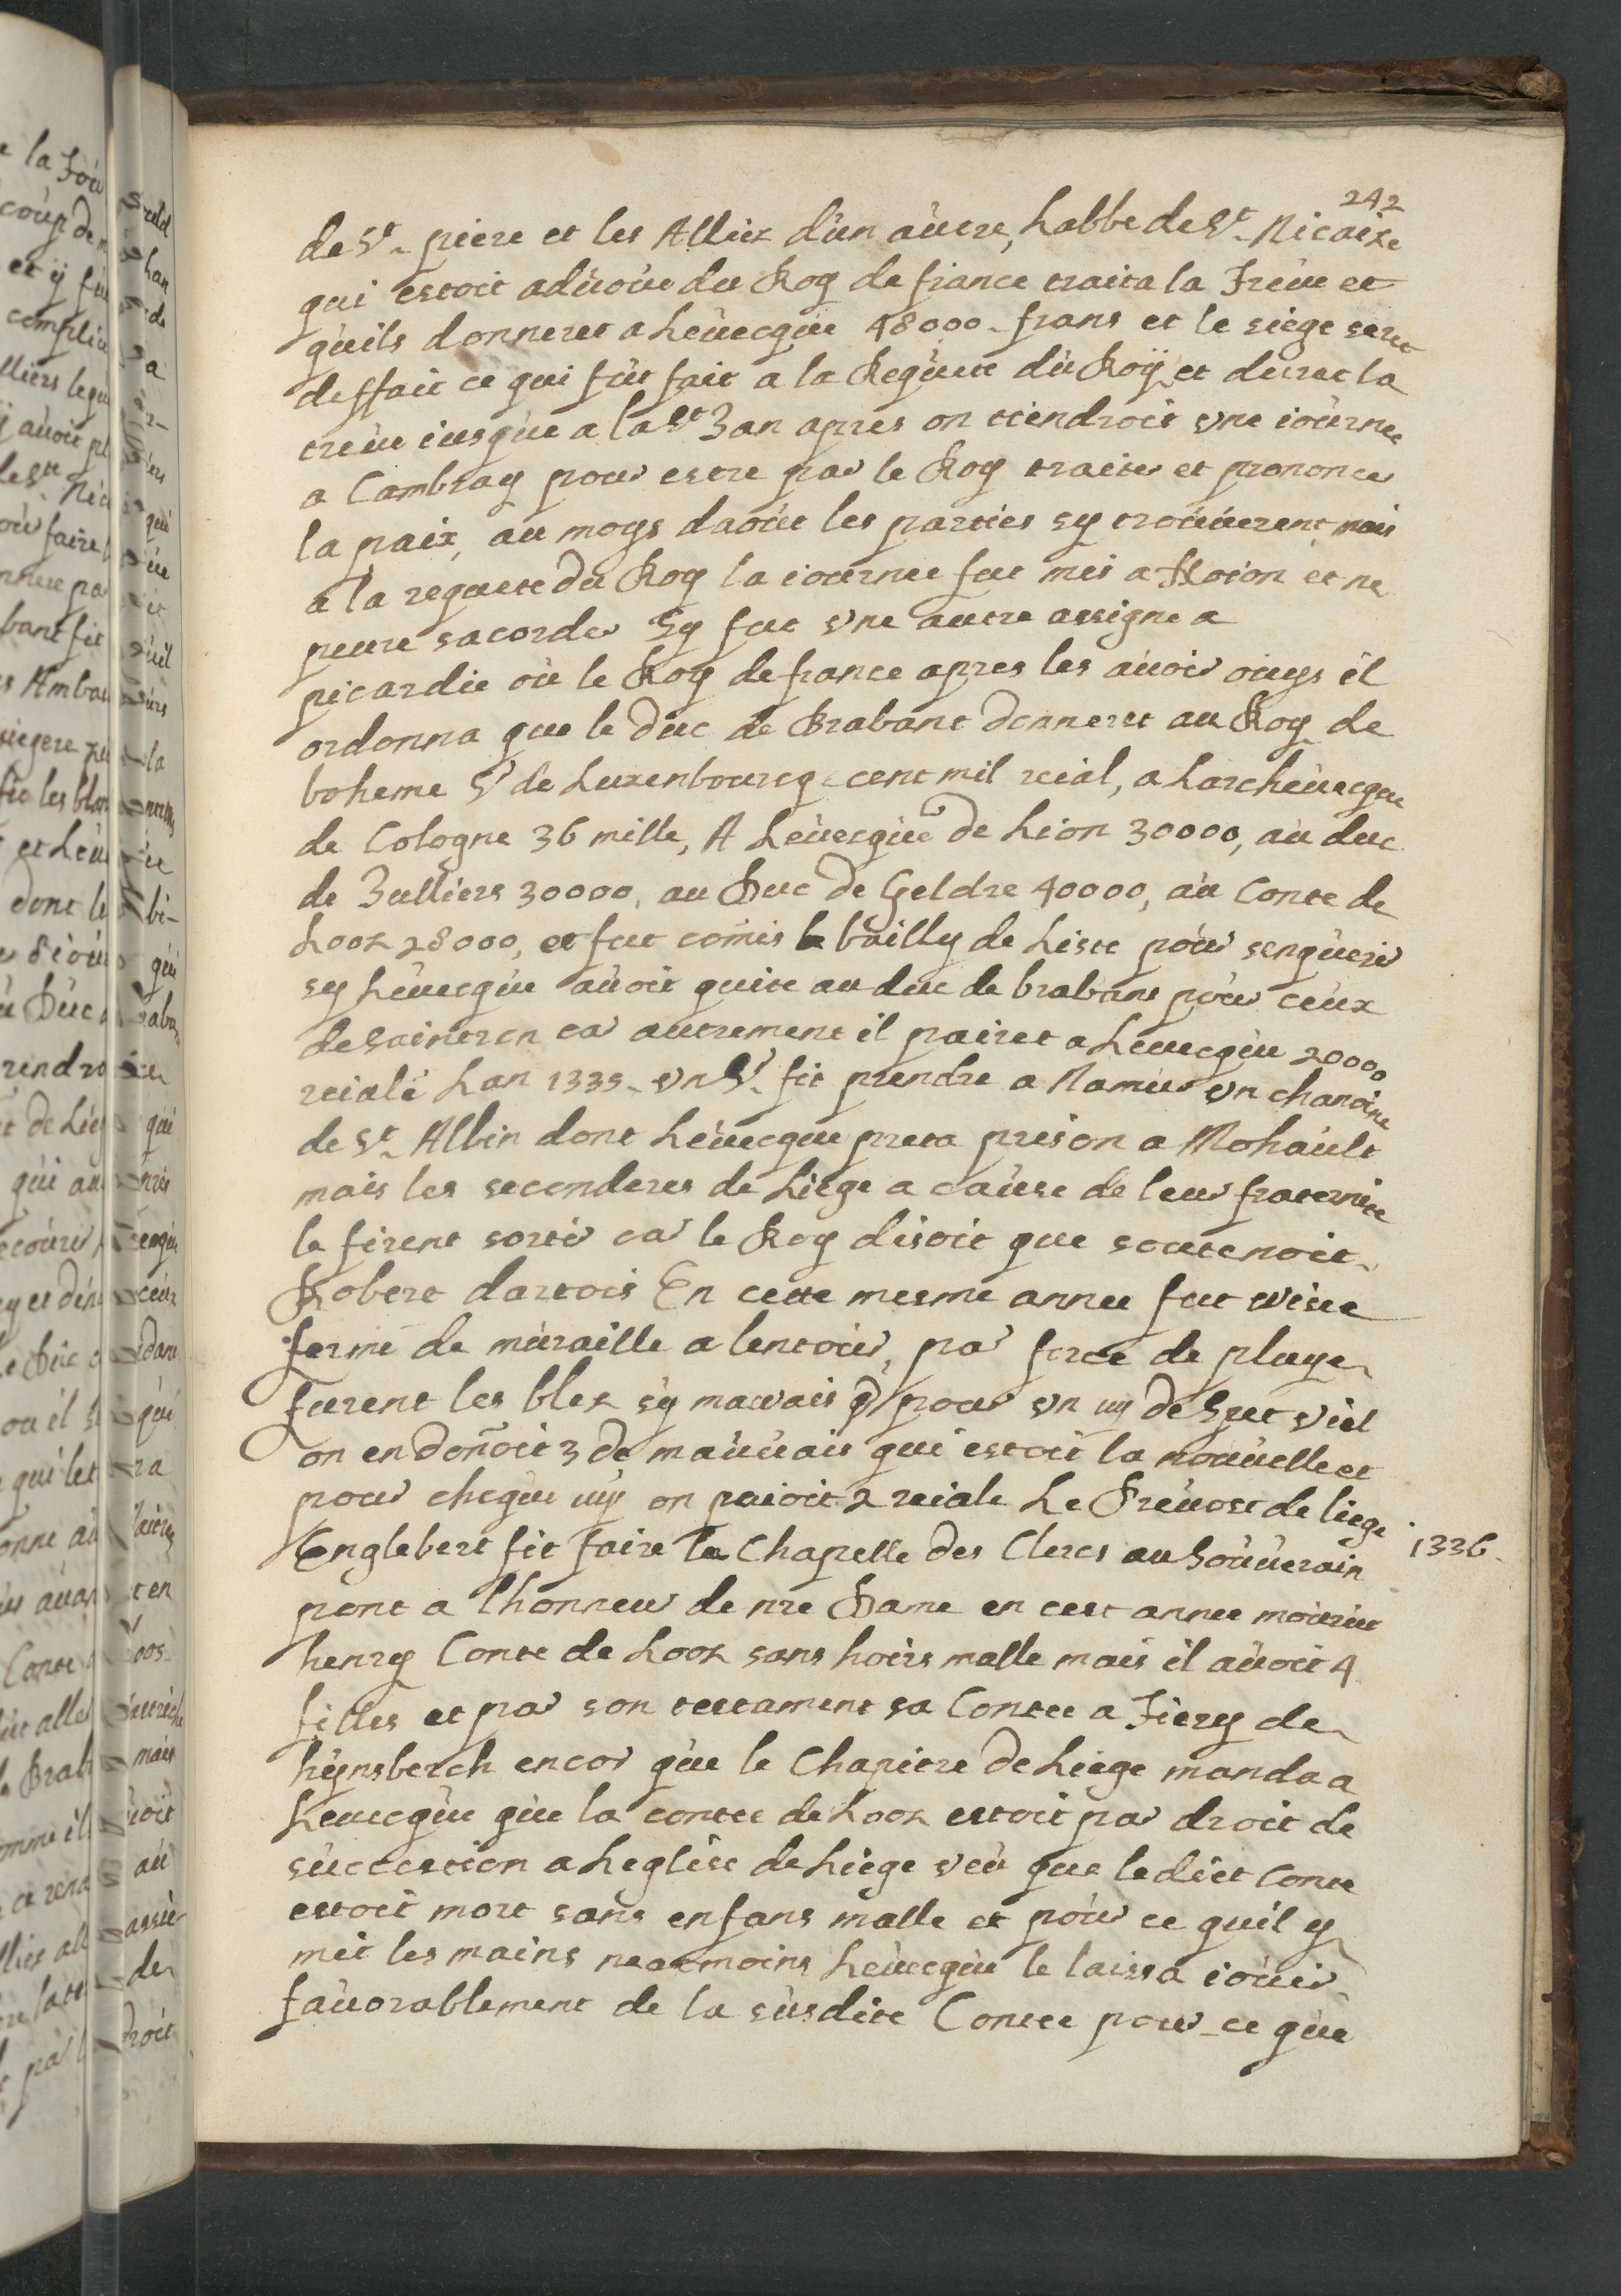 242
de St. piere et les Alliez d'un autre, Labbe de St. Nicaize
qui estoit aduoue du Roy de france traita la Treue et
quils donneret a Leuecque 48000 frans et le siege seret
deffait ce qui fut fait a la Requete du Roÿ et dureret la
treue iusque a la St Jan apres on tiendroit vne iournee
a Cambray pour estre par le Roy traiter et prononcer
la paix, au moys daout les parties sy trouuerent mais
a la requete du Roy la iournee fut mis a Noion et ne
peure sacorder Sy fut vne autre assigne a
picardie ou le Roy de france apres les auoir ouys il
ordonna que le Duc de Brabant donneret au Roy de
boheme Sr de Luxenbourcq cent mil reial, a Larcheuecque
de Cologne 36 mille, A Leuecque de Lion 30000, au duc
de Julliers 30000, au Duc de Geldre 40000, au Conte de
Looz 28000, et fut comis le bailly de Liste pour senquerir
sy Leuecque auoit quite au duc de brabant pour ceux
de saintron car autrement il pairet a Leuecque 20000
reiale Lan 1335 vn Sr. fit prendre a Namur vn chanoine
de St. Albin dont Leuecque preta prison a Mohault
mais les seconderes de Liege a cause de leur fraternite
le firent sortir car le Roy disoit que soutenoit
Robert dartois En cette mesme annee fut wisee
fermé de muraille a lentour, par force de pluye
furent les blez sy mauvais q pour vn uy de Spet viel
on en donnoit 3 de mauuais qui estoit la nouuelle et
pour cheque uy on paioit 2 reiale Le Preuost de liege
Englebert fit faire la Chapelle des Clercs au Souuerain
1336
pont a lhonneur de nre Dame en cest annee mourut
henry Conte de Looz sans hoirs malle mais il auoit 4
filles et par son testament sa Contee a Tiery de
hynsberch encor que le Chapitre de Liege manda a
Leuecque que la contee de Looz estoit par droit de
succession a Leglise de Liege veu que ledict Conte
estoit mort sans enfans malle et pour ce quil y
mit les mains neatmoins Leuecque le laissa iouir
fauorablement de la susdite Contee pour ce que